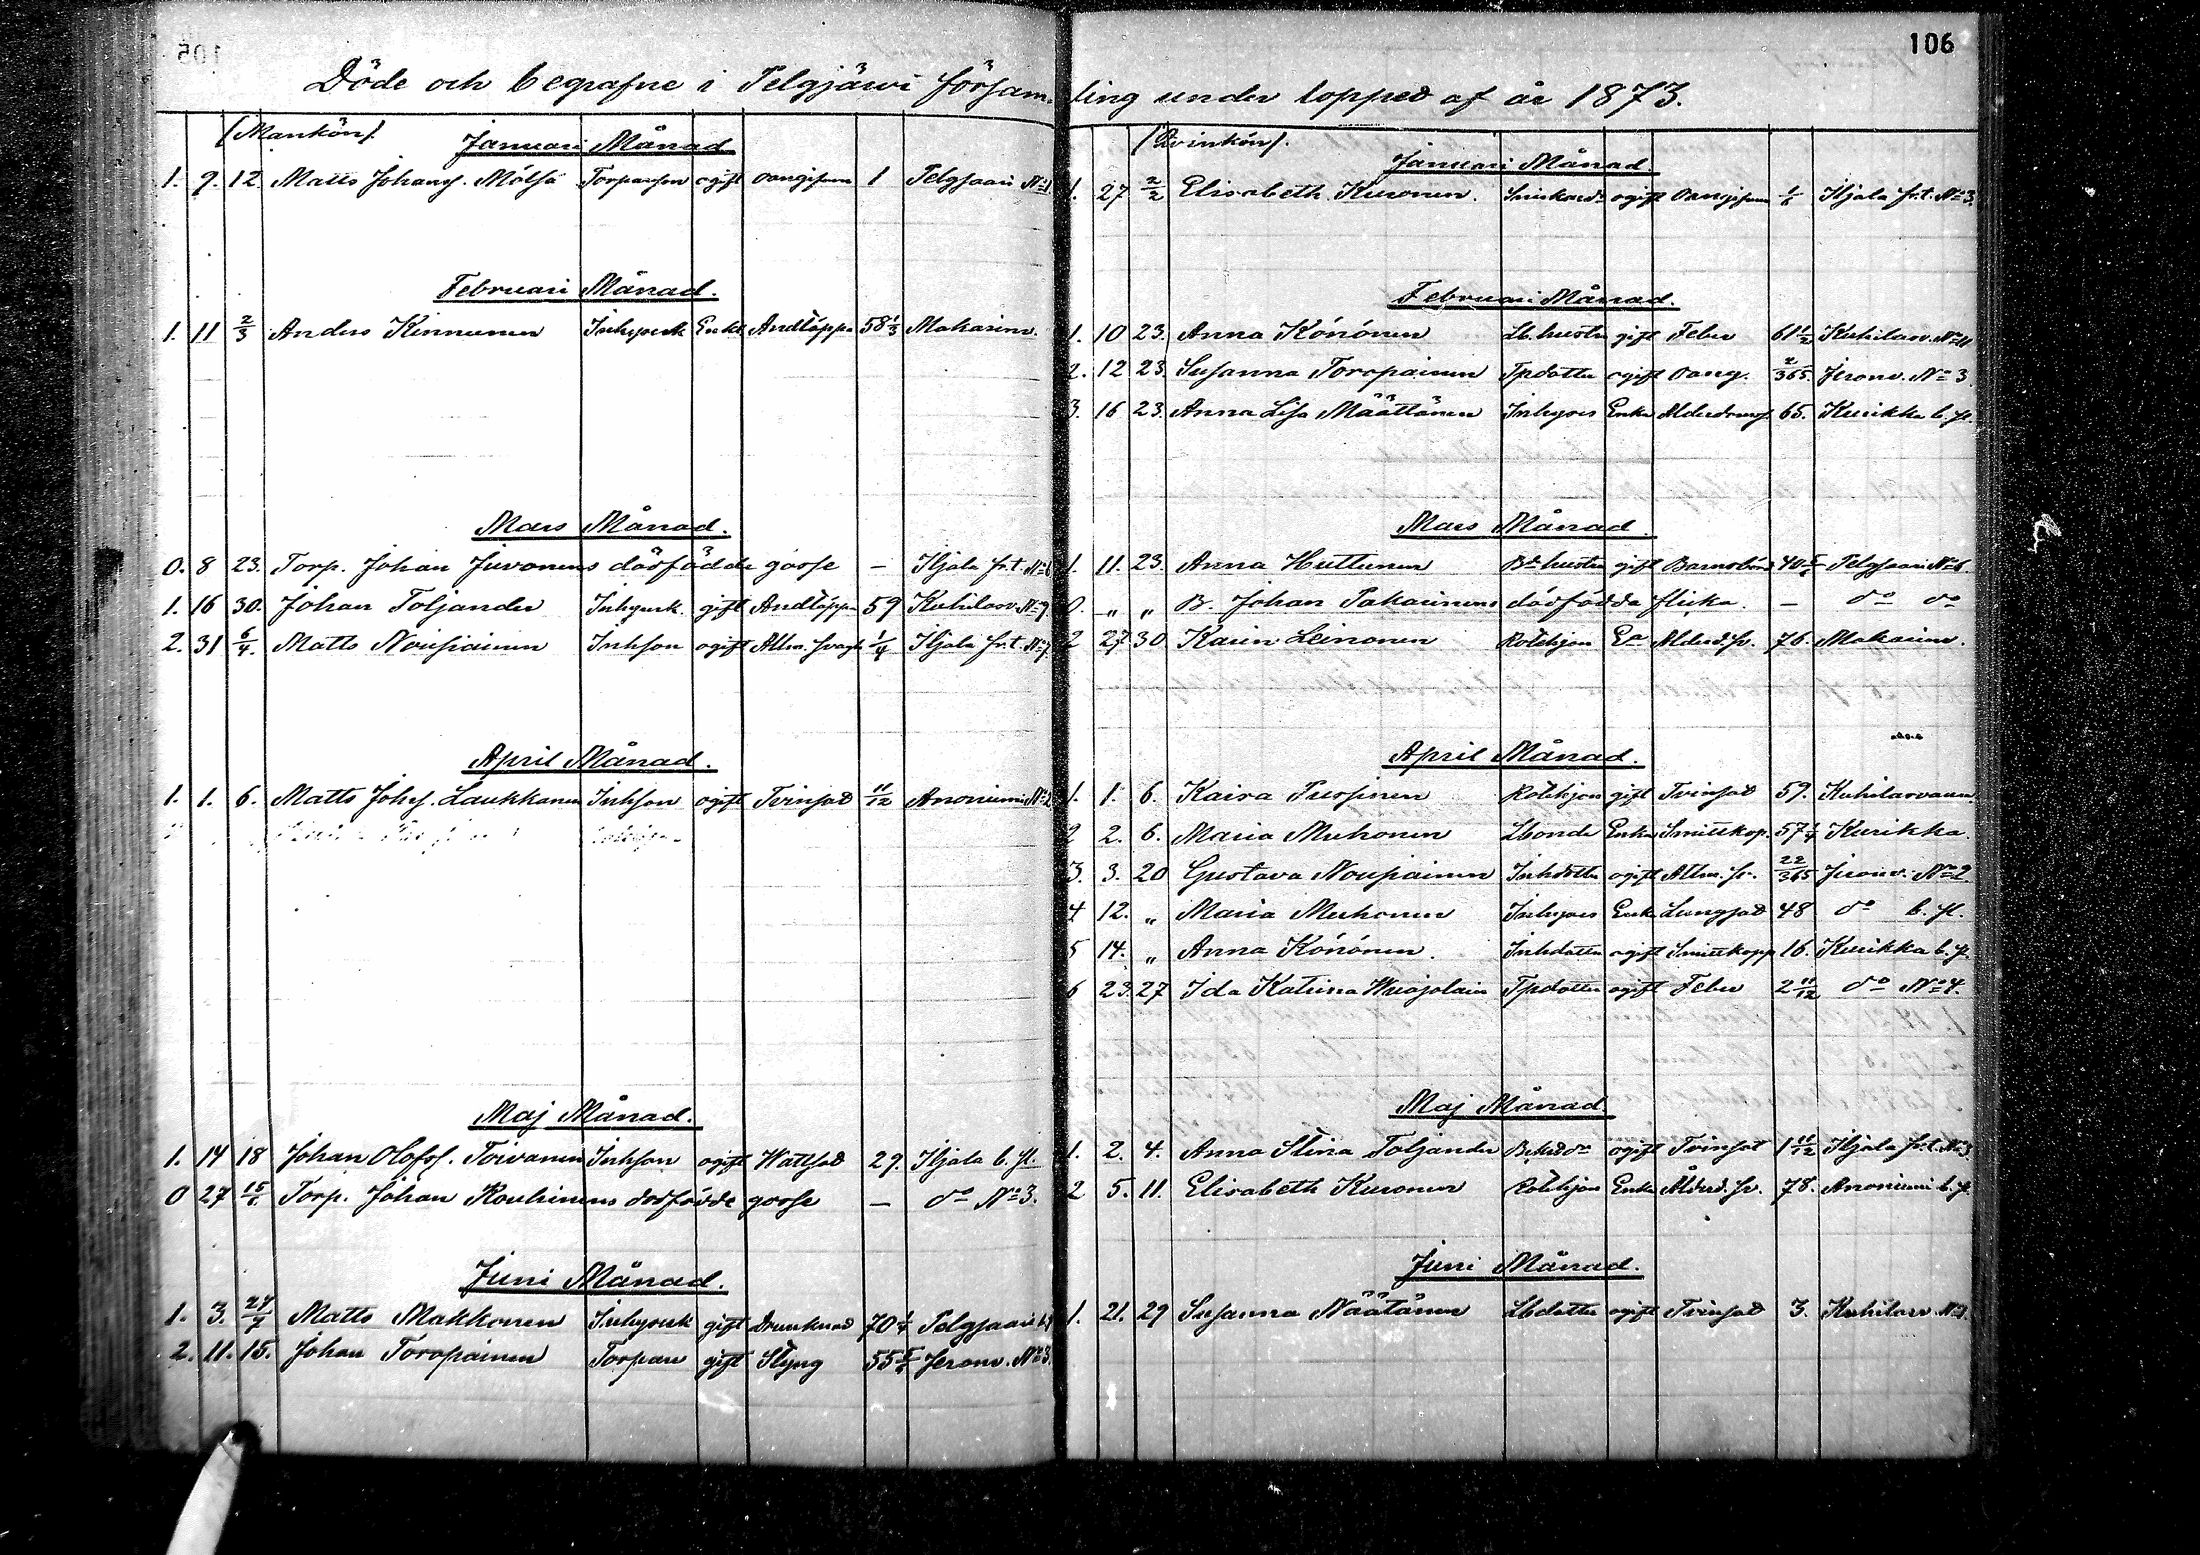 106
Döde och begrafne i Pelgjärvi försam-
(Mankön).
Januari Månad
1. 9. 12 Matts Johanss. Mölsä Torparson ogift oangifven 1 Pelgjaari No 1
Februari Månad.
1. 11 2/3 Anders Kinnunen Inhysesk Enkl Andtäppa 58 1/3 Makarinv.
Mars Månad.
0. 8 23. Torp. Johan Juvonens dödfödda gosse — Iljala fr.t. No
1. 16 30. Johan Toljander Inhysesk. gift Andtäppa 59 Kuhilasv. No 9
2. 31 6/4. Matts Nousiainen Inhson ogift Allm. svagh. 1/4 Iljala fr.t. No 7
April Månad.
1. 1. 6. Matts Johss. Laukkanen Inhson ogift Tvinsot 11/12 Anoniemi No 2
Maj Månad.
1. 14 18 Johan Olofss. Toivanen Inhson ogift Wattsot 29. Iljala b. fl.
0 27 15/6. Torp. Johan Rouhinens dödfödde gosse — do No 3.
Juni Månad.
1. 3. 27/7 Matts Makkonen Inhysesk gift Drunknad 70 1/4 Pelgjaari
2. 11. 15. Johan Toropainen Torpare gift Styng 55 Jeronv. No 3.
ling under loppet af år 1873.
(Qvinkön).
Januari Månad.
1. 27 2/2 Elisabeth Kuronen. ogift Oangifven Iljala fr.t. No 3.
Februari Månad.
1. 10 23. Anna Könönen Lb. hustru gift Feber 61 1/2 Kuhilasv. No 11
2. 12 23. Susanna Toropainen Tpdotter ogift Oang. 2/365. Jeronv. No 3.
3. 16 23. Anna Lisa Määttänen Inhyses Enka Ålderdomsf. 65. Kurikka b. fl.
Mars Månad.
1. 11. 23. Anna Huttunen Bd hustru gift Barnsbörd 40 Pelgjaari No 6.
0. „ „ B. Johan Pakarinens dödfödda flicka. — do do
2 27. 30. Karin Leinonen Rotehjon Ea Ålderd.sv. 76. Makarinv.
April Månad.
1. 1. 6. Kaisa Pursinen Rotehjon gift Tvinsot 59. Kuhilasvaara.
2 2. 6. Maria Muhonen Lbonde Enka Smittkop. 57 1/4 Kurikka.
3. 3. 20 Gustava Nousiainen Inhdotter ogift Allm. sv. 22/365 Jeronv. No 2.
4 12. „ Maria Muhonen Inhyses Enk Lungsot 48 do b. fl.
5 14. „ Anna Könönen. Inhdotter ogift Smittkopp 16. Kurikka b. fl.
6 23. 27 Ida Katrina Wuojolain Tpdotter ogift Feber 2 11/12 do No 4.
Maj Månad
1. 2. 4. Anna Stina Toljander ogift Tvinsot 1 11/12 Iljala fr.t. No 3
2 5. 11. Elisabeth Kuronen Rotehjon Enka Ålderd. sv. 78. Anoniemi b. fl.
Juni Månad.
1. 21. 29 Susanna Näätänen Lbdotter ogift Tvinsot 3. Kuhilasv.